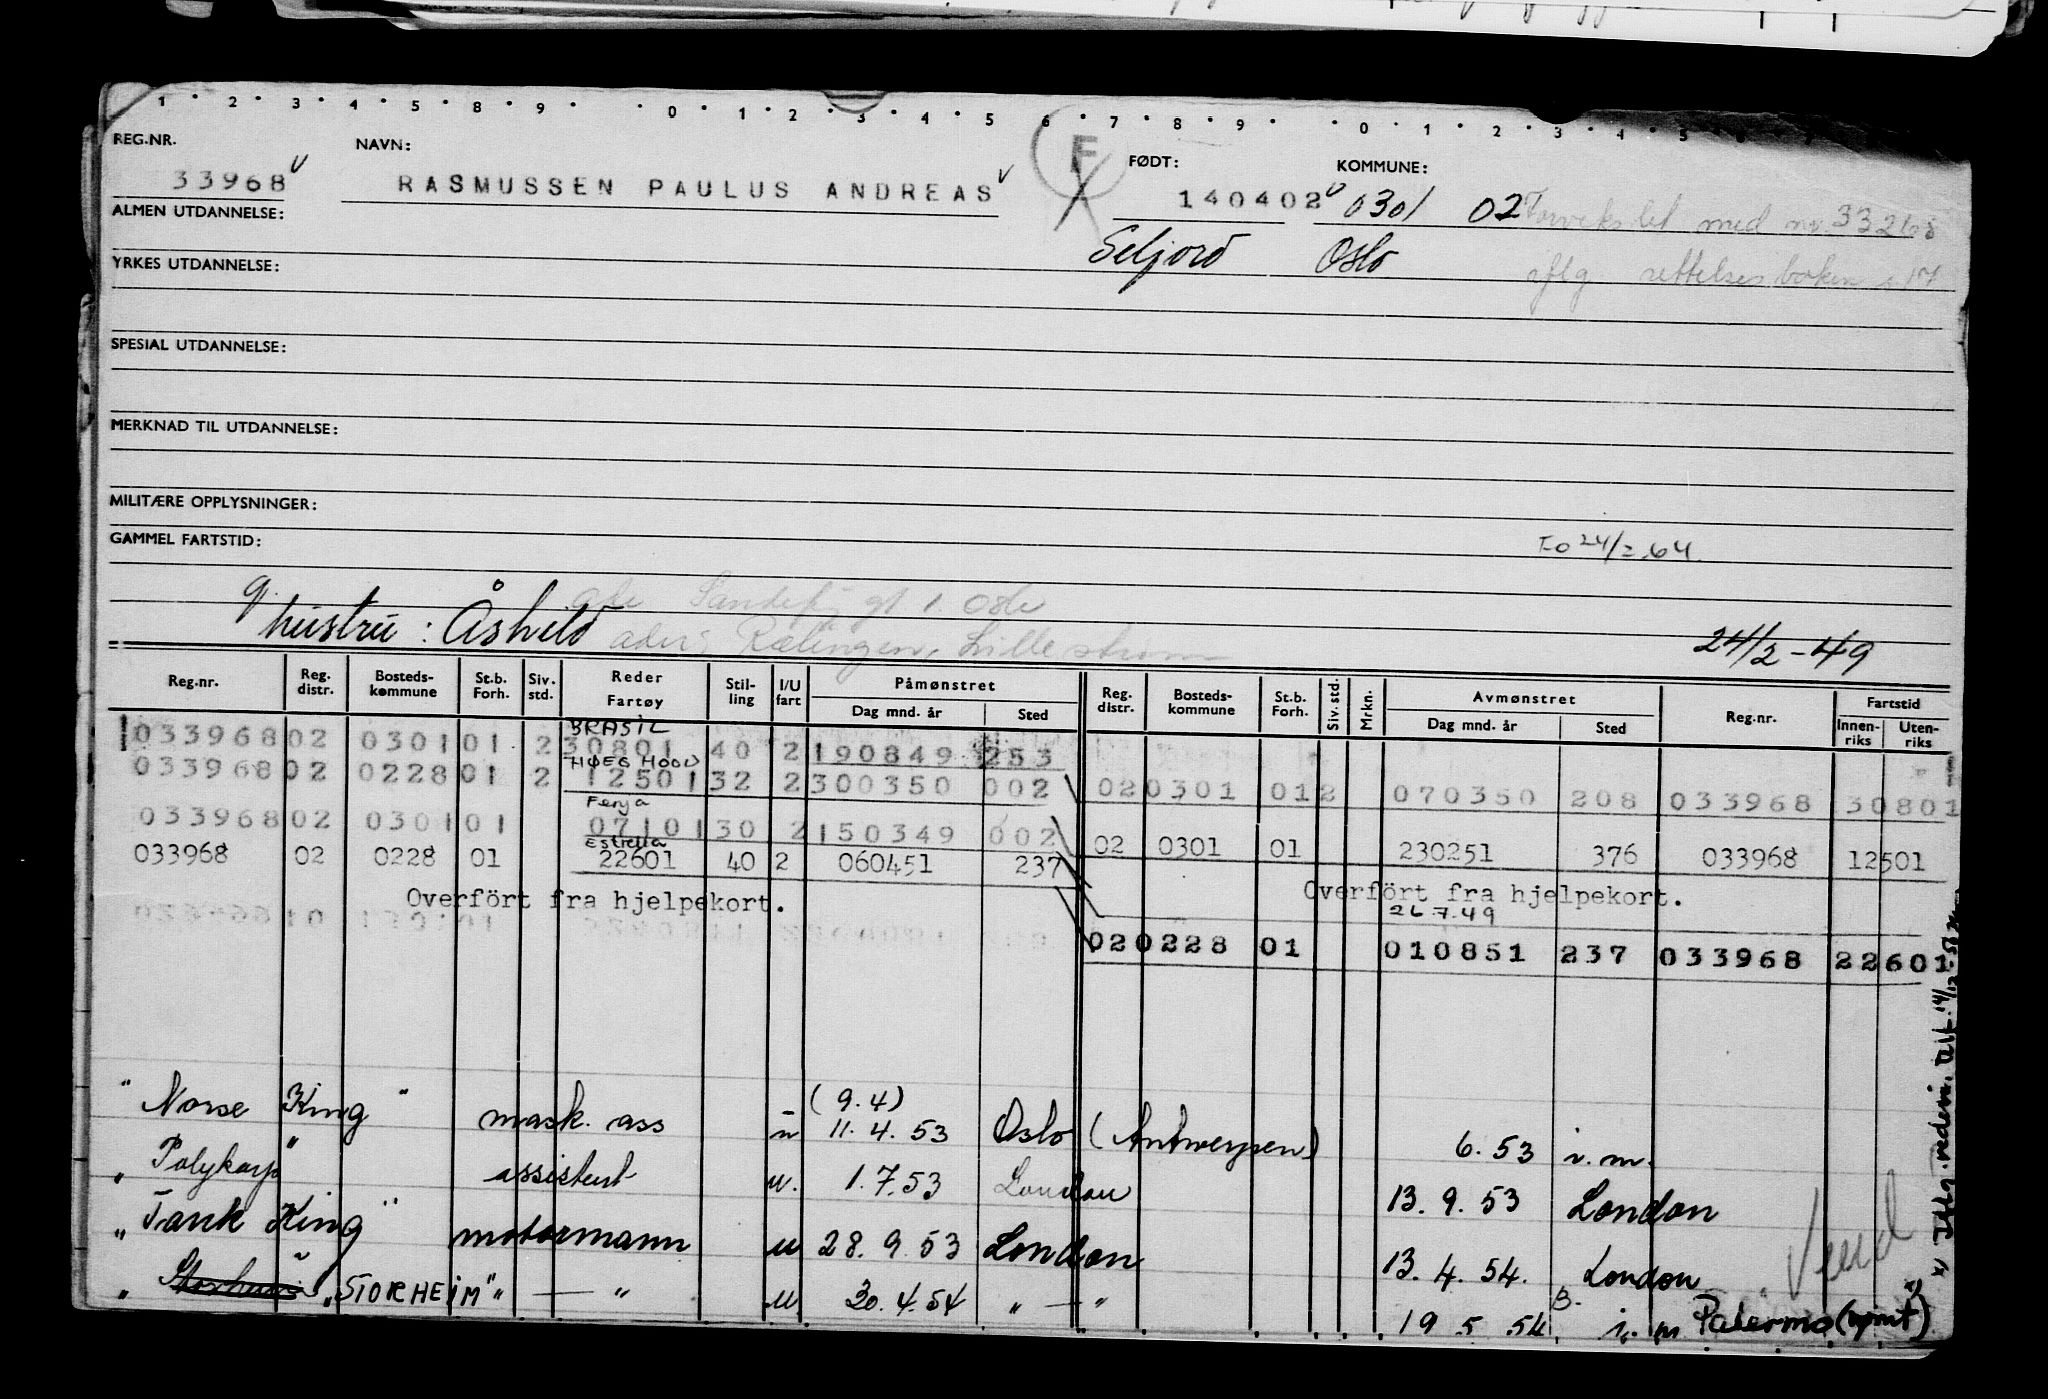 1 2 3 4 5 8 9 0 1 2 3 4 5 6 7 8 9 0 1 2 3 4 5
REG.NR. NAVN: F FØDT: KOMMUNE:
33968 RASMUSSEN PAULUS ANDREAS 140402 0301 02 Forvekslet med nr. 33268
ALMEN UTDANNELSE: Seljord Oslo iflg rettelsesboken s 17
YRKES UTDANNELSE:
SPESIAL UTDANNELSE:
MERKNAD TIL UTDANNELSE:
MILITÆRE OPPLYSNINGER:
GAMMEL FARTSTID: Fo 24/2.64
g. hustru: Åshild
adr: Rælingen, Lillestrøm 24/2-49
Reg.nr. Reg. distr. Bosteds-kommune St.b. Forh. Siv. std. Reder Fartøy Stil-ling I/U fart Påmønstret Dag mnd. år Sted Reg. distr. Bosteds-kommune St.b. Forh. Siv. std. Mrkn. Avmønstret Dag mnd. år Sted Reg.nr. Fartstid Innen-riks Uten-riks
BRASIL
033968 02 0301 01 2 30801 40 2 190849 253
HØEG HOOD
033968 02 0228 01 2 12501 32 2 300350 002 02 0301 01 2 070350 208 033968 30801
Ferya
033968 02 0301 01 07101 30 2 150349 002
Estrella
033968 02 0228 01 22601 40 2 060451 237 02 0301 01 230251 376 033968 12501
Overført fra hjelpekort. Overført fra hjelpekort.
26.7.49
02 0228 01 010851 237 033968 22601
(9.4)
"Norse King" mask. ass u 11.4.53 Oslo (Antwerpen) 6.53 i.m.
"Polykarp" assistent u. 1.7.53 London 13.9.53 London
"Tank King" motormann u 28.9.53 London 13.4.54. London
" "STORHEIM" — " u. 30.4.54 " — " 19.5.54 i.m Palermo (mømt) x)